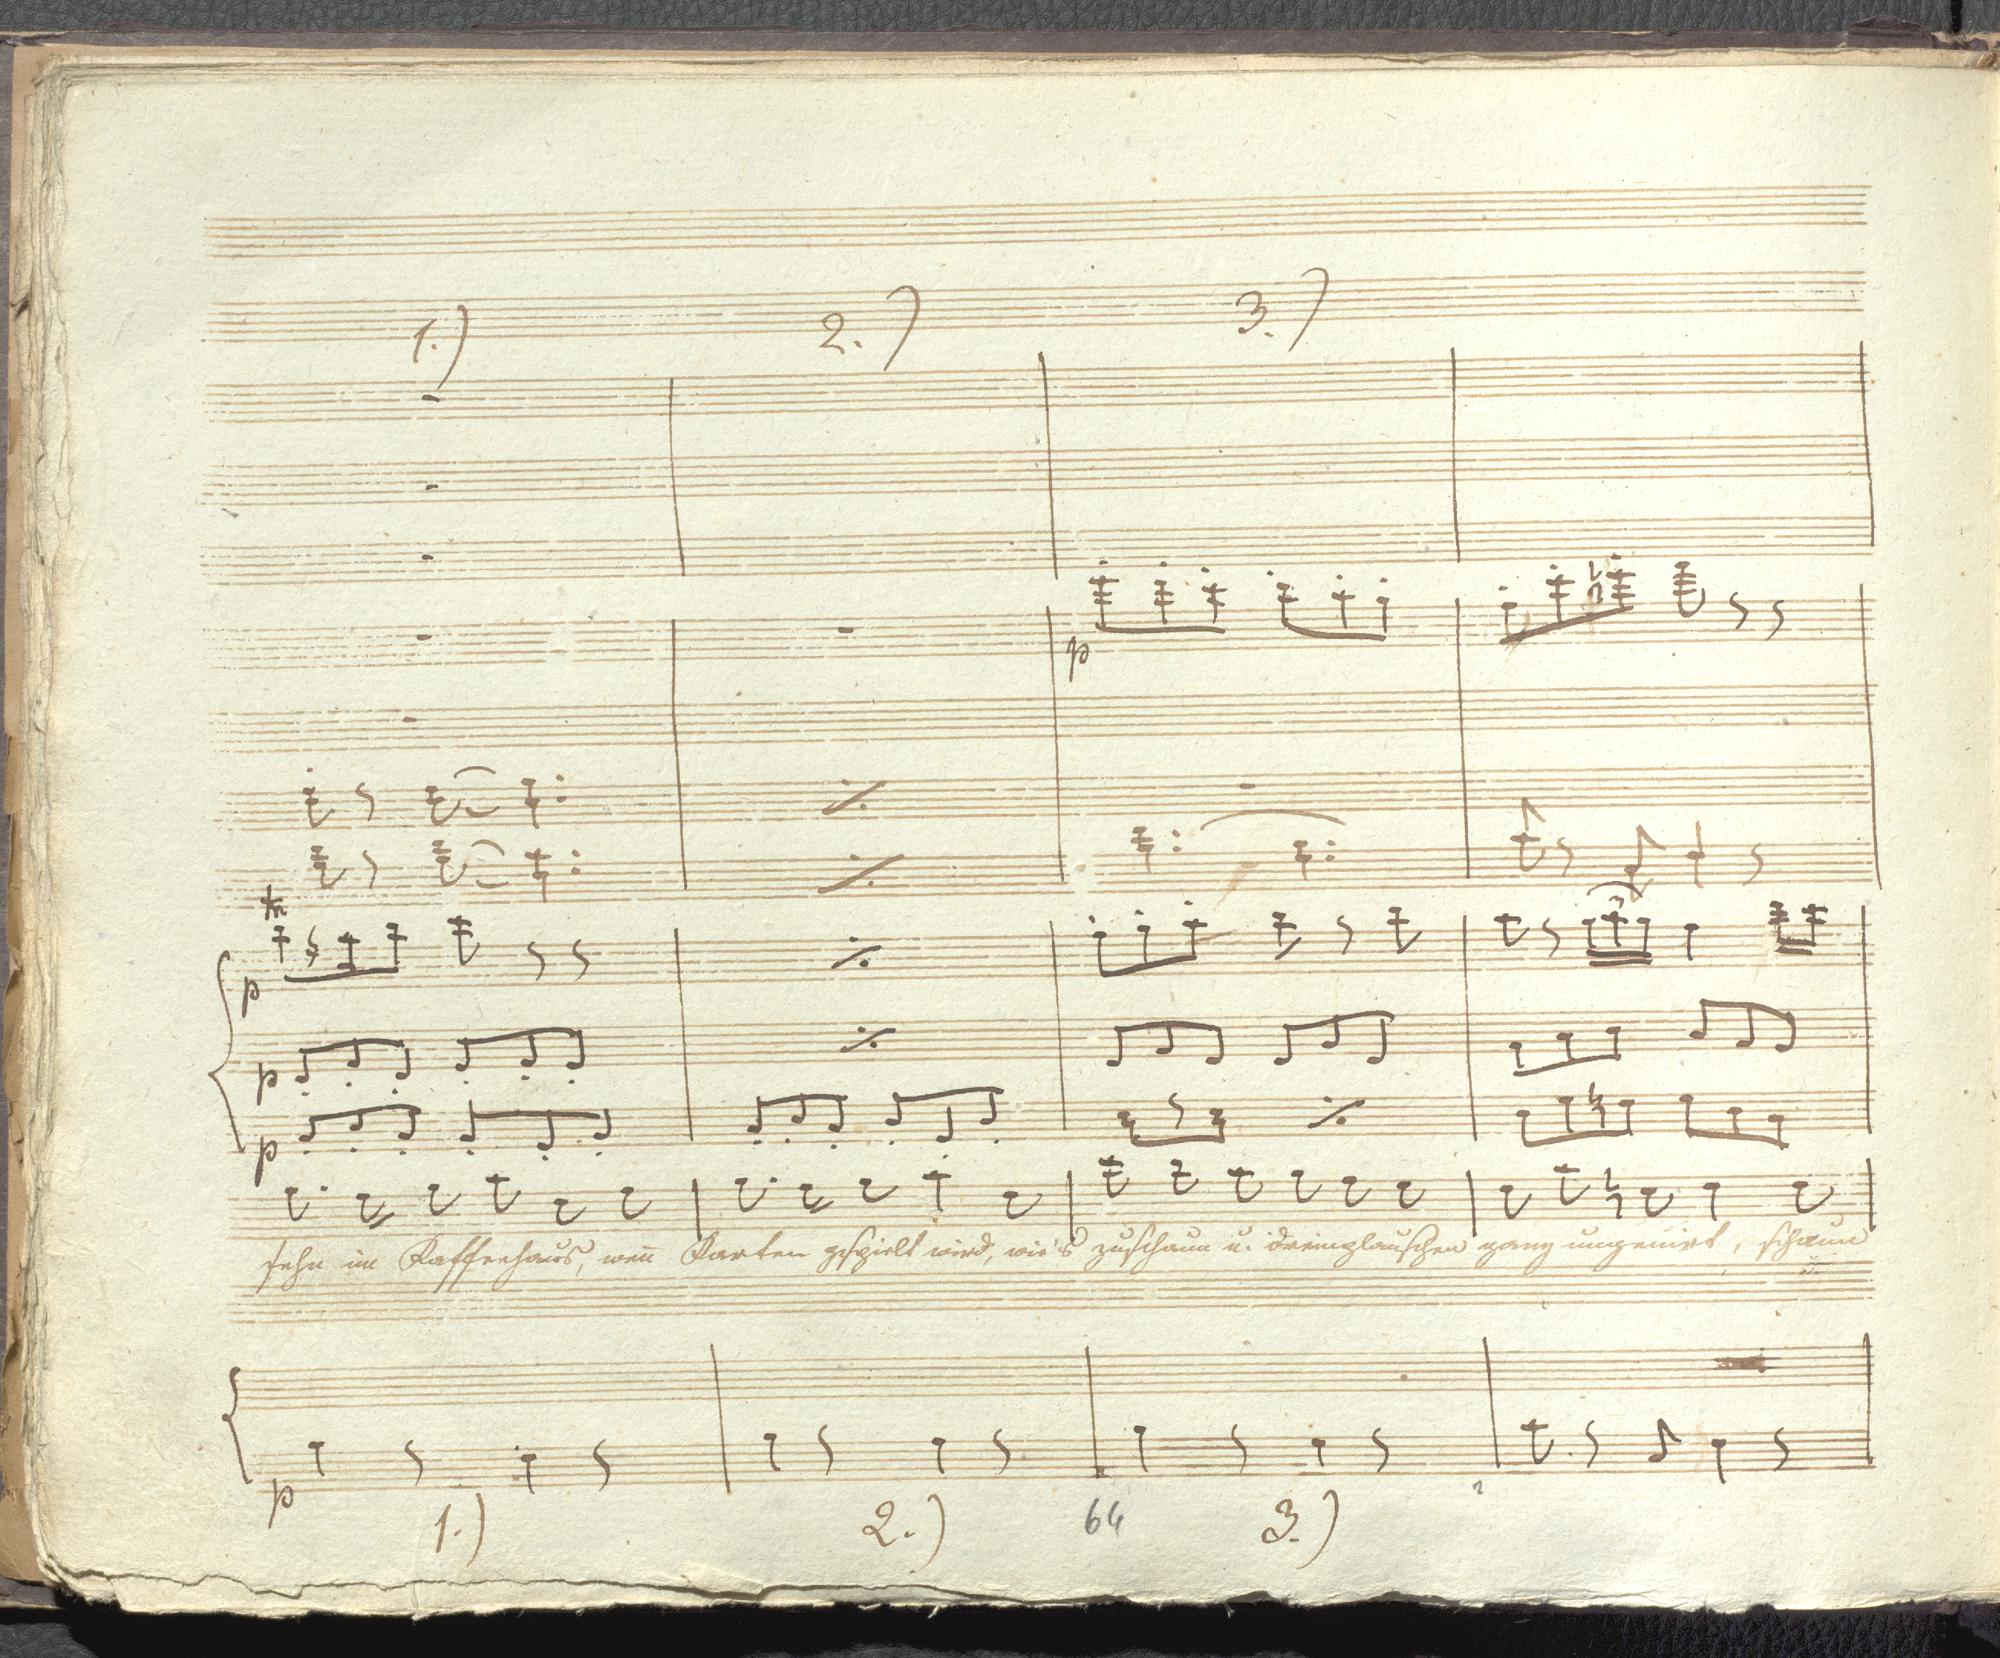 1.) 2.) 3.)
p
tr
p
p
p
sehn im Kaffeehaus, wen̅ Karten gspielt wird, wie's zuschaun u. dreinplauschen ganz ungenirt, schaun
p
1.) 2.) 64 3.)